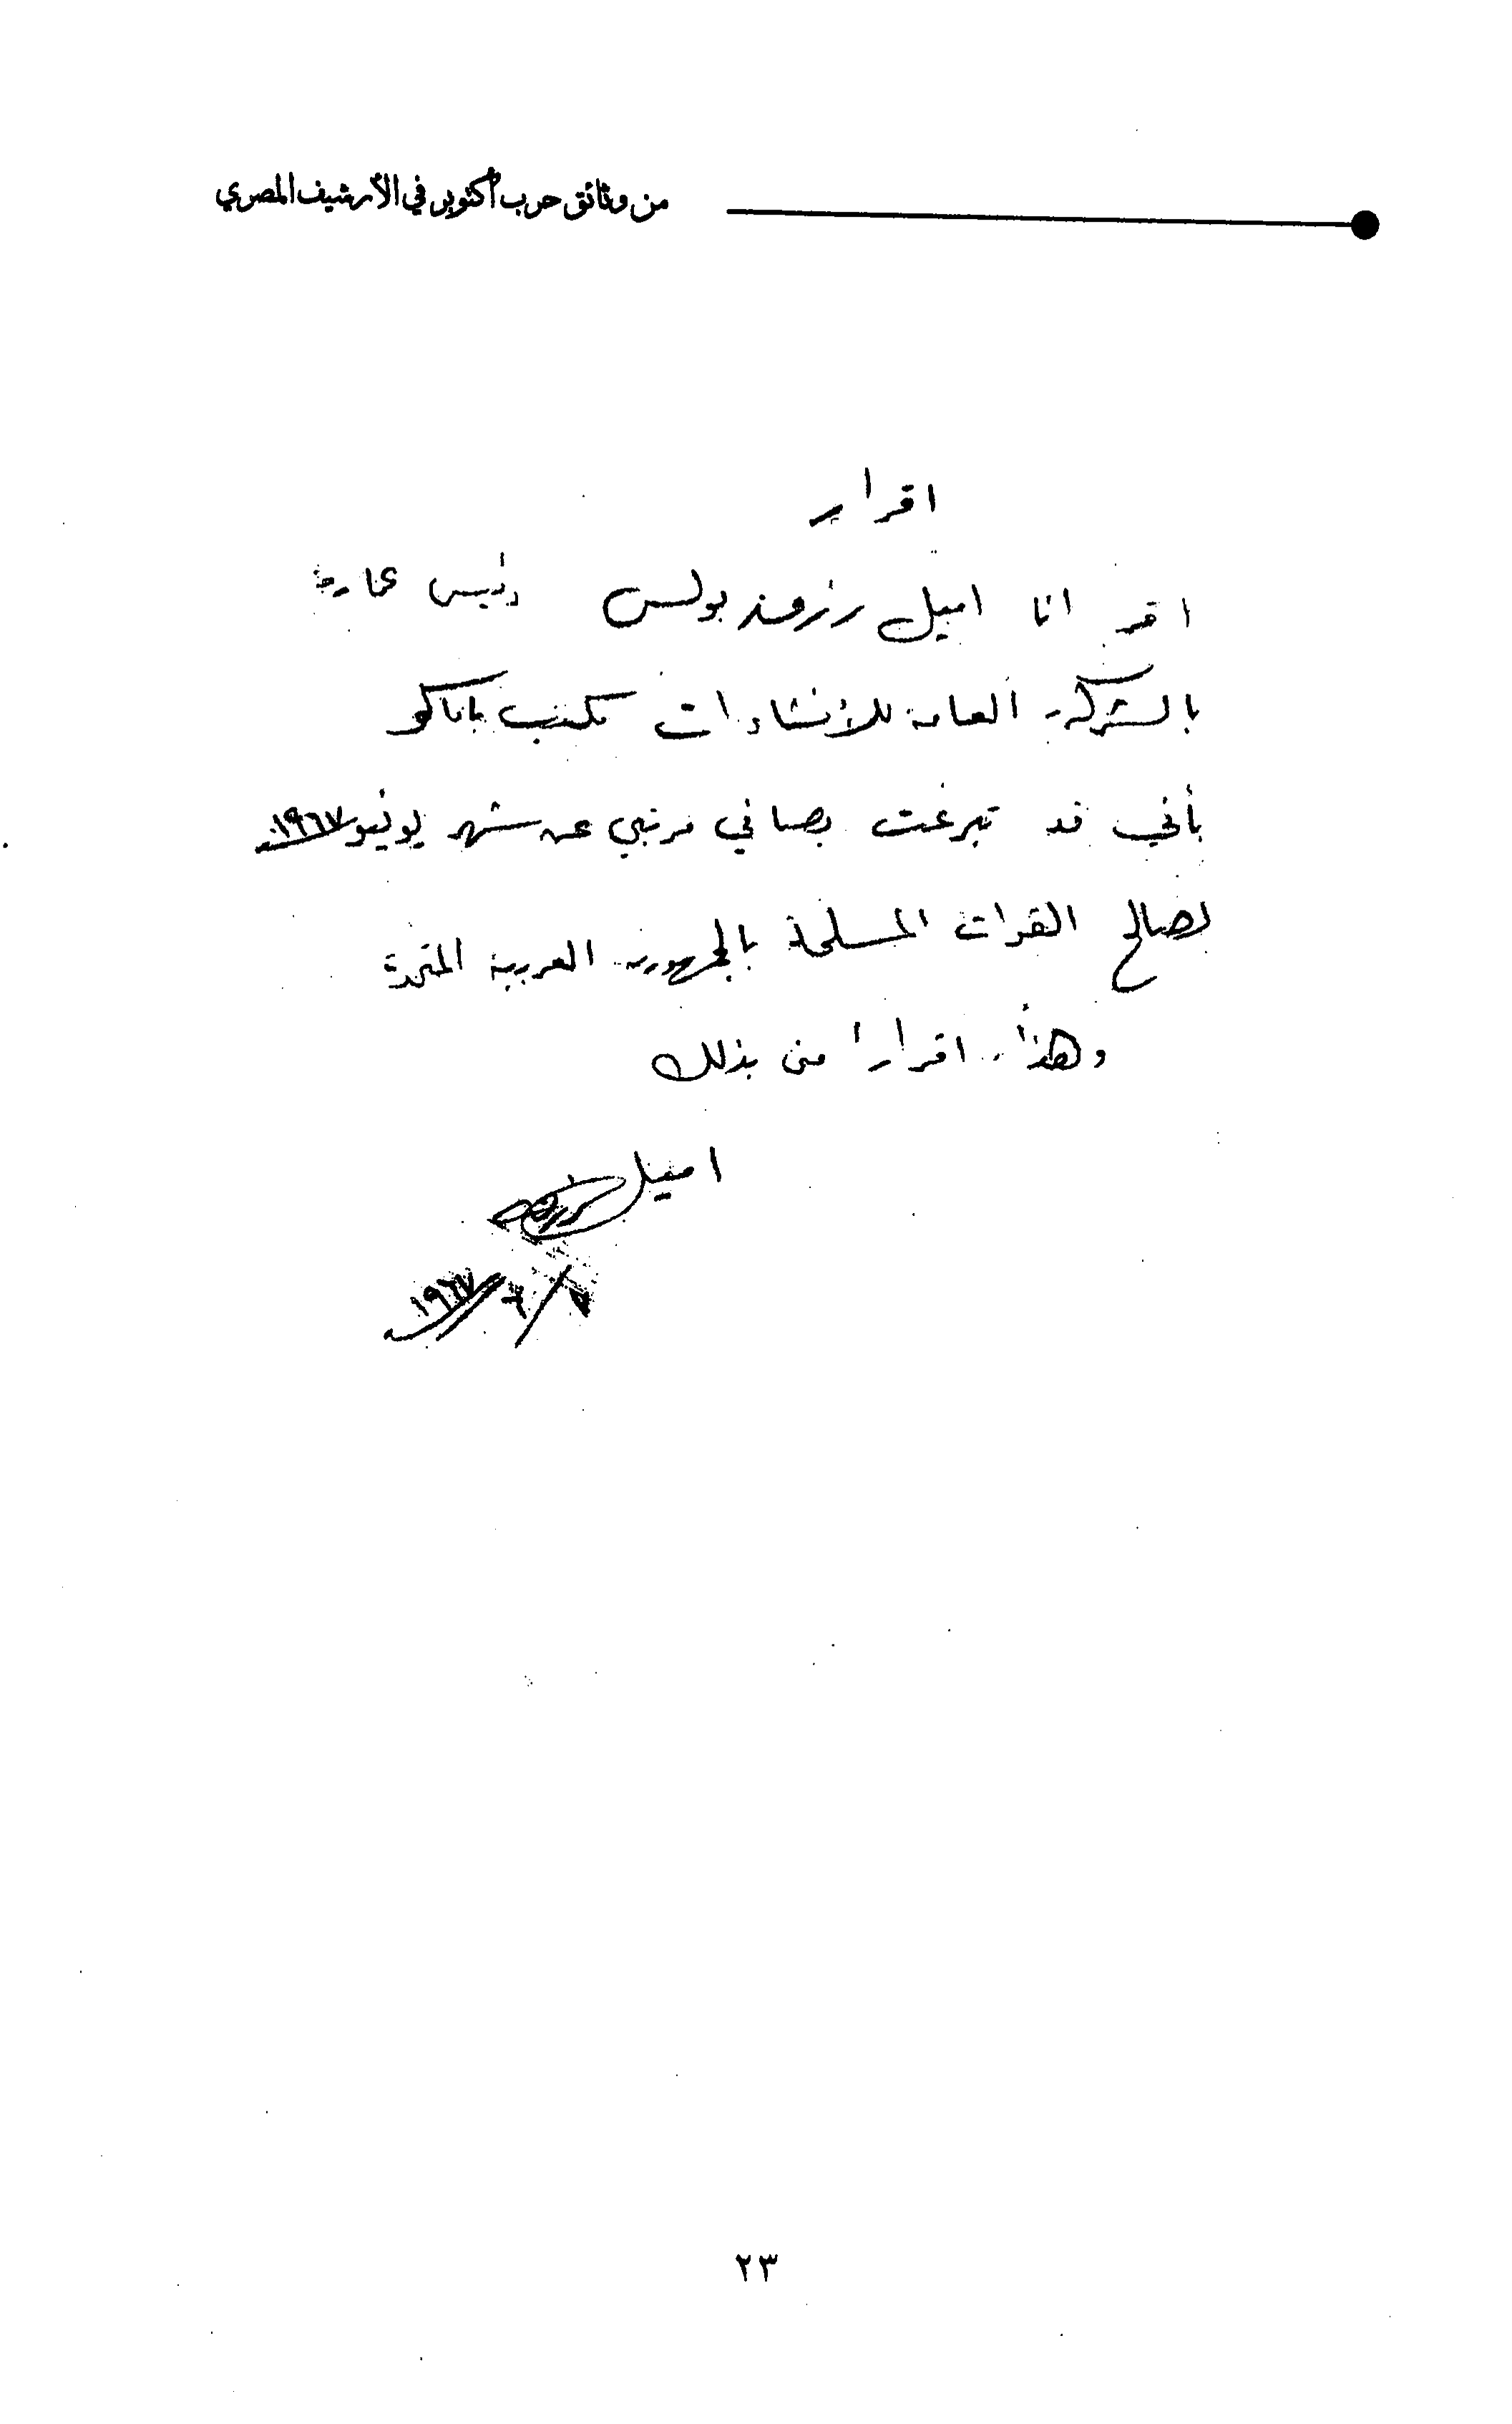 من وثائق حرب أكتوبر في الأرشيف المصري
اقرار
اقر انا اميل رزق بولس رئيس عمارة
بالشركة العامة للأنشاءات مكتب باماكو
بأني قد تبرعت بصافي مرتبي عن شهر يونيو ١٩٦٧
لصالح القوات المسلحة بالجمهورية العربية المتحدة
وهذا اقرارا منى بذلك
اميل رزق
٦/١٩٦٧
٢٣